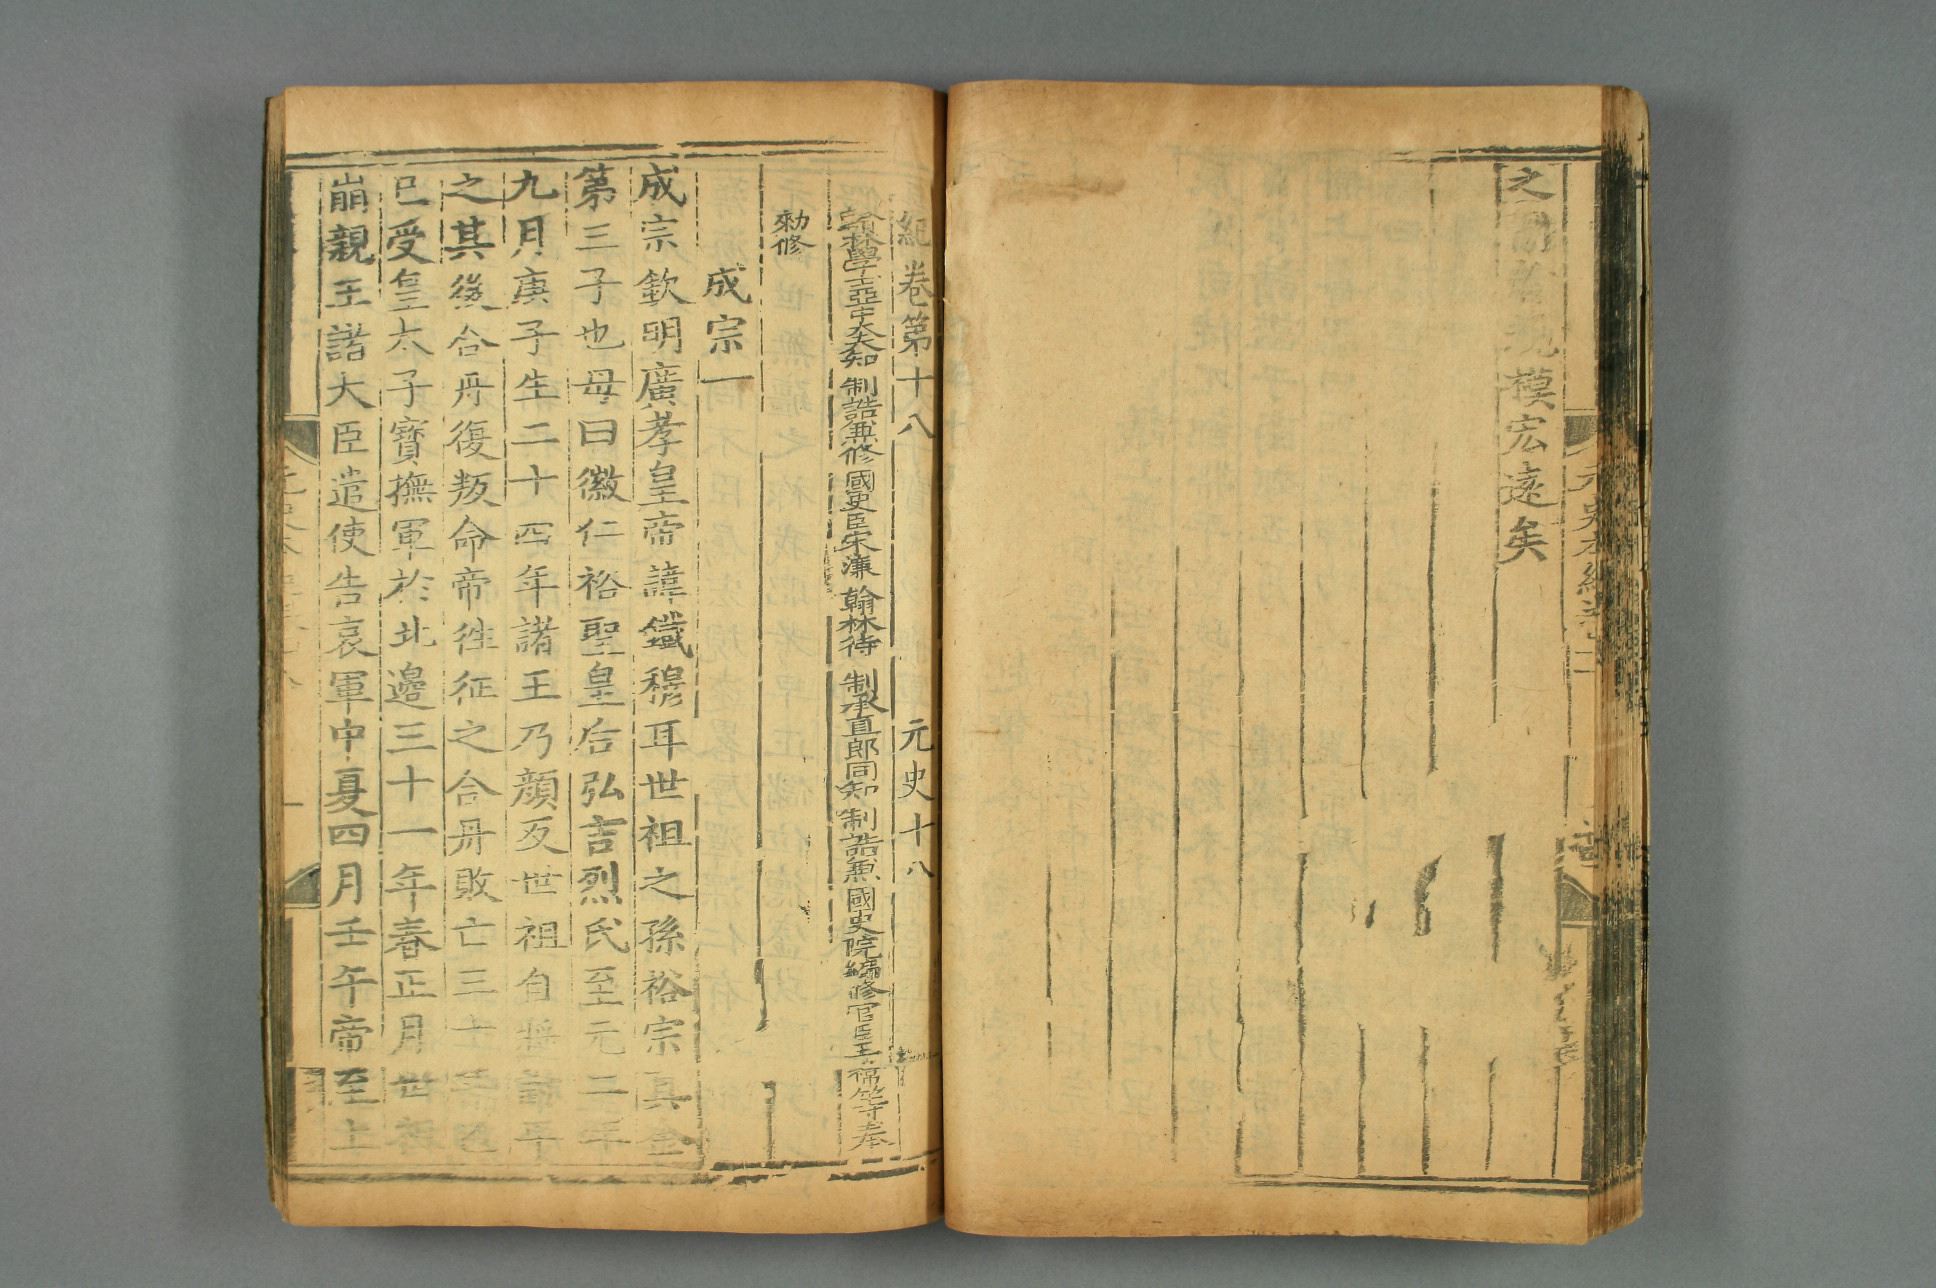 之制者規模宏遠矣
紀卷第十八 元史十八
翰林學士亞中大夫知 制誥兼修 國史臣宋濂 翰林待 制承直郎同知 制誥兼 國史院編修官臣王禕等奉
勑修
成宗一
成宗欽明廣孝皇帝諱鐵穆耳世祖之孫裕宗真金
第三子也母曰徽仁裕聖皇后弘吉烈氏至元二年
九月庚子生二十四年諸王乃顏反世祖自將討平
之其後合丹復叛命帝徃征之合丹敗亡三十
已受皇太子寶撫軍於北邊三十一年春正月世祖
崩親王諸大臣遣使告哀軍中夏四月壬午帝至上